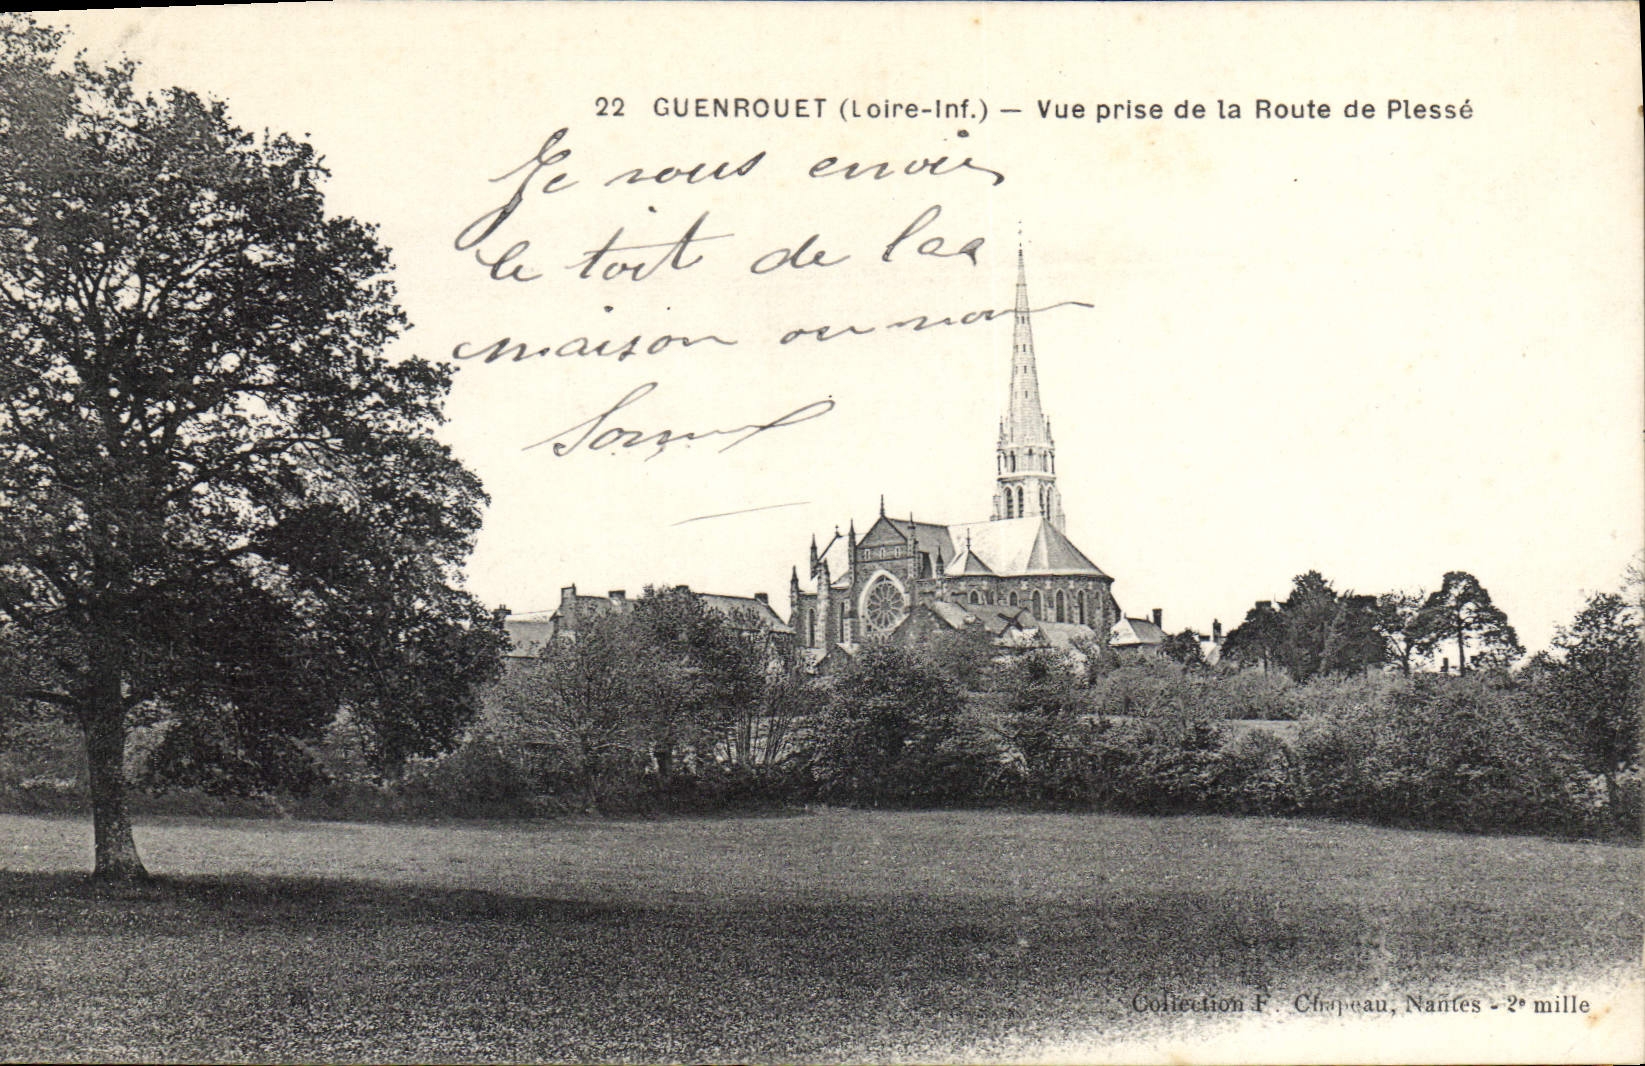 22 GUENROUET (Loire-Inf.) — Vue prise de la Route de Plessé
Je vous envoie
le toit de la
maison ou nou
Somme
Collection F. Chapeau, Nantes - 2e mille